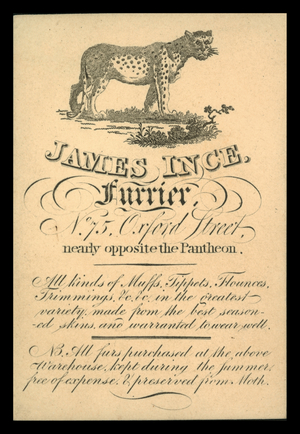 JAMES INCE,
Furrier,
No. 75, Oxford Street,
nearly opposite the Pantheon.
All kinds of Muffs, Tippets, Flounces,
Trimmings, &c. &c. in the greatest
variety, made from the best season-
ed skins, and warranted to wear well.
NB. All furs purchased at the above
Warehouse, kept during the summer,
free of expense, & preserved from Moth.